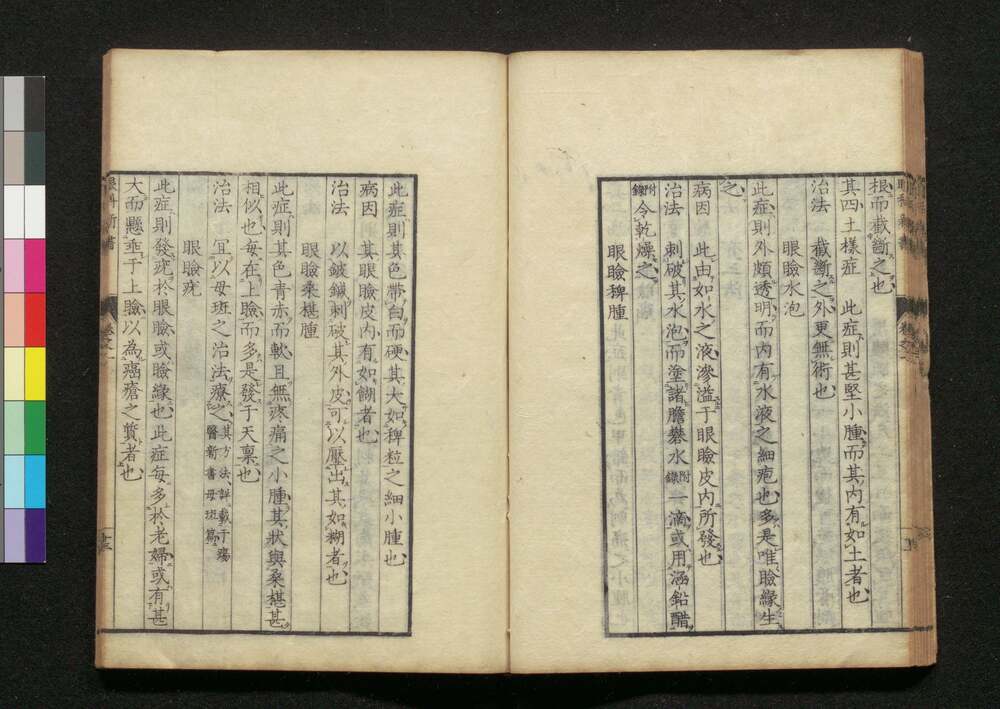 根而截斷之也
其四土樣症　此症則甚堅小腫而其内有如土者也
治法　截斷之外更無術也
眼瞼水泡
此症則外頗透明而内有水液之細疱也多是唯瞼緣生
之
病因　此由如水之液滲溢于眼瞼皮内所發也
治法　刺破其水泡而塗諸膽礬水附錄一滴或用涵鉛醋
附錄令乾燥之
眼瞼稗腫
此症則其色帶白而硬其大如稗粒之細小腫也
病因　其眼瞼皮内有如餬者也
治法　以鈹鍼刺破其外皮可以壓出其如糊者也
眼瞼桑椹腫
此症則其色青赤而軟且無疼痛之小腫其狀與桑椹甚
相似也每在上瞼而多是發于天稟也
治法　宜以母班之治法療之其方法詳載于瘍醫新書母班篇
眼瞼疣
此症則發疣於眼瞼或瞼緣也此症每多於老婦或有甚
大而懸垂于上瞼以為癌瘡之質者也
眼科新書
卷之一